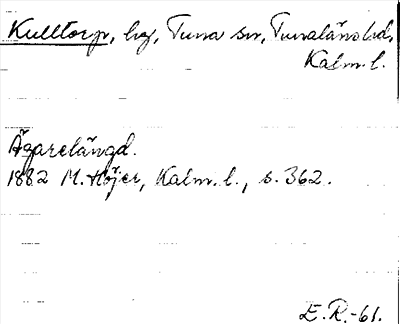 Kulltorp, hg, Tuna sn, Tunaläns hd,
Kalm. l.
Ägarelängd.
1882 M. Höjer, Kalm. l., s. 362.
E. R.-61.